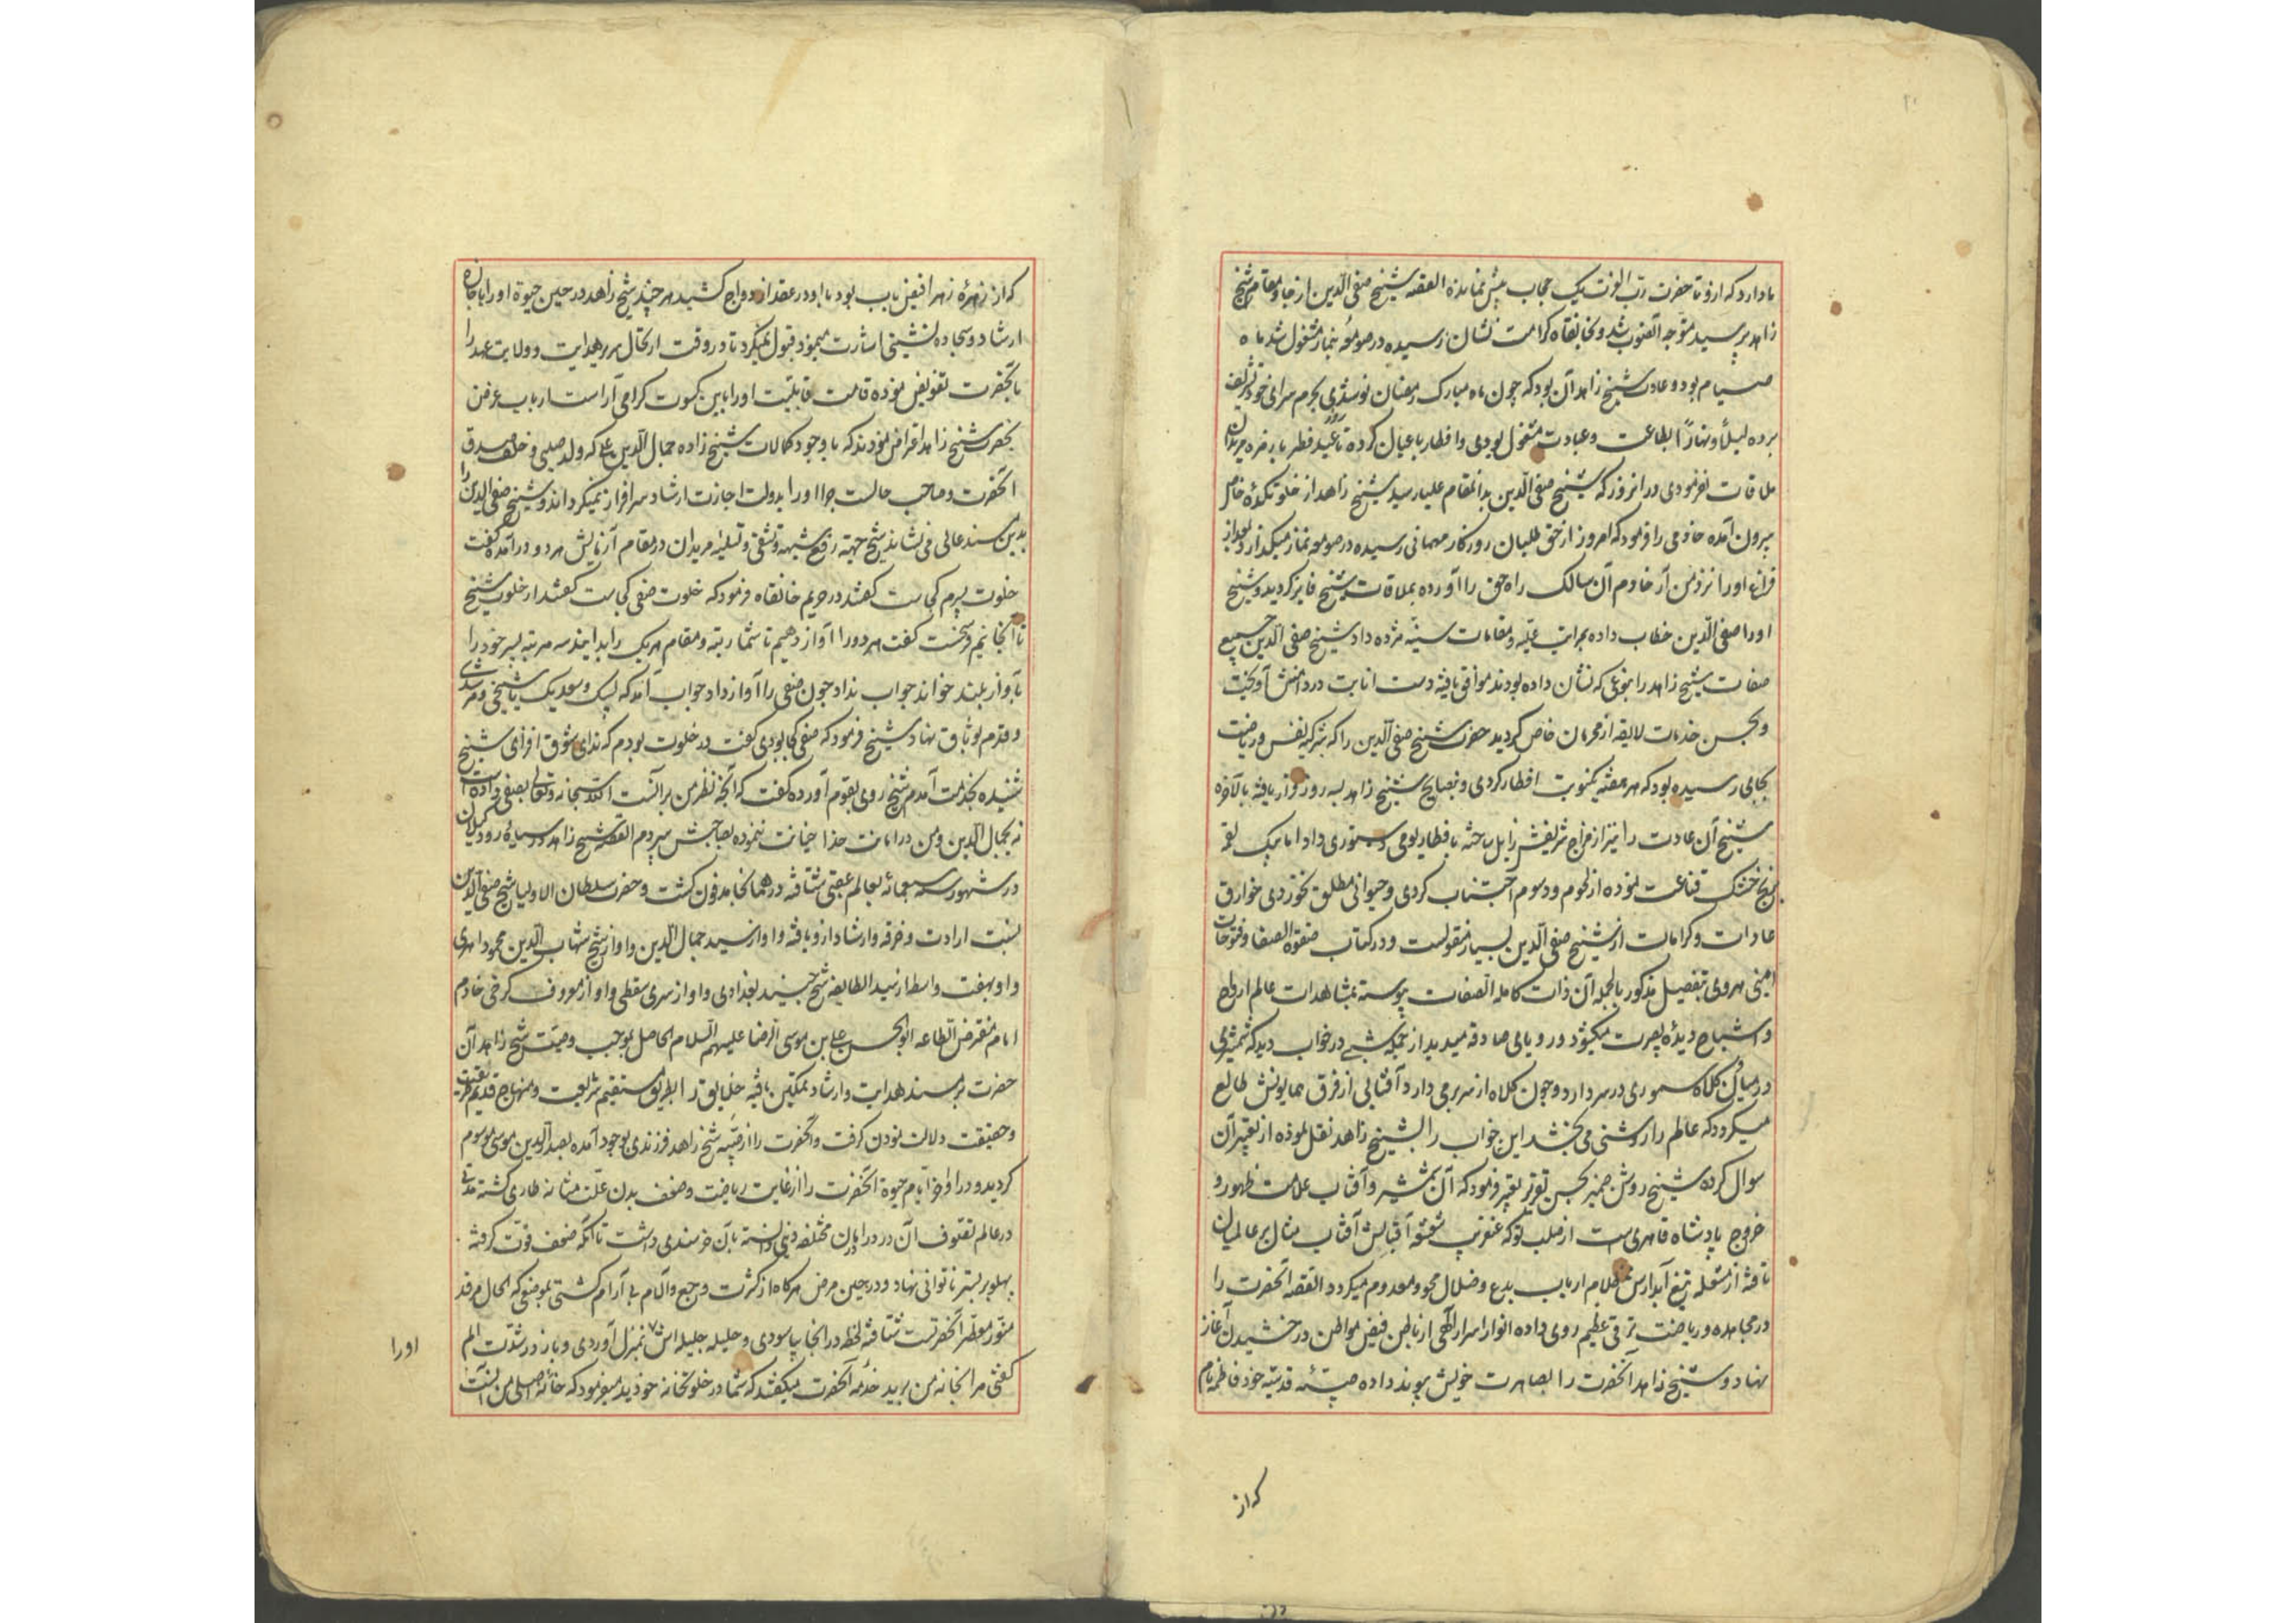 ما دارد که ازو تا حضرت رب العزت یک حجاب بیش نمانده القصه شیخ صفی الدین از جا و مقام شیخ
زاهد پرسید متوجه آنصوب شد و بخانقاه کرامت نشان رسیده در صومعه بنماز مشغول شد ماه
صیام بود و عادت شیخ زاهد آن بود که چون ماه مبارک رمضان نو شدی بحرم سرای خود تشریف
برده لیلاً و نهاراً بطاعت و عبادت مشغول بودی و افطار با عیال کرده تا روز عید فطر با زمره مریدان
ملاقات نفرمودی در انروز که شیخ صفی الدین بدانمقام علیا رسید شیخ زاهد از خلوتکده خاص
بیرون آمده خادمی را فرمود که امروز از حق طلبان روزکار مهمانی رسیده در صومعه نماز میکذارد بعد از
فراغ او را نزد من آر خادم آن سالک راه حق را آورده بملاقات شیخ فایز کردید و شیخ
او را صفی الدین خطاب داده بمراتب علیه و مقامات سنیه مژده داد شیخ صفی الدین جمیع
صفات شیخ زاهد را بنوعی که نشان داده بودند موافق یافته دست انابت در دامنش آویخت
و بحسن خدمات لایقه از محرمان خاص کردید حضرت شیخ صفی الدین را که بتزکیه نفس و ریاضت
بجایی رسیده بود که هر هفته یکنوبت افطار کردی و بنصایح شیخ زاهد بسه روز قرار یافته بالآخره
شیخ آن عادت را نیز از مزاج شریفش زایل ساخته بافطار یومی دستوری داد اما بیک لقمه
برنج خشک قناعت نموده از لحوم و دسوم اجتناب کردی و حیوانی مطلق نخوردی خوارق
عادات و کرامات از شیخ صفی الدین بسیار منقولست و در کتاب صفوة الصفا و فتوحات
امینی هروی بتفصیل مذکور بالجمله آن ذات کامله الصفات پیوسته بمشاهدات عالم ارواح
و اشباح دیده بصیرت میکشود و رویای صادقه میدید از جمله شبی در خواب دید که شمشیری
در میان و کلاه سموری در سر دارد و چون کلاه از سر برمی دارد آفتابی از فرق همایونش طالع
میکردد که عالم را روشنی می بخشد این خواب را بشیخ زاهد نقل نموده از تعبیر آن
سوال کرده شیخ روشن ضمیر بحسن تقریر تعبیر فرمود که آن شمشیر و آفتاب علامت ظهور و
خروج پادشاه قاهریست از صلب تو که عنقریب شعشعه آفتابش آفتاب مثال بر عالمیان
تافته از شعله تیغ آبدارش ظلام ارباب بدع و ضلال محو و معدوم میکردد القصه آنحضرت را
در مجاهده و ریاضت ترقی عظیم روی داده انوار اسرار الهی از باطن فیض مواطن درخشیدن آغاز
نهاد و شیخ زاهد آنحضرت را بمصاهرت خویش پیوند داده صبیه قدسیه خود فاطمه نام
که از
که از زهره زهرا فیض یاب بود با او در عقد ازدواج کشید هر چند شیخ زاهد در حین حیوة او را با جازه
ارشاد و سجاده نشینی اشارت مینمود قبول نمیکرد تا در وقت ارتحال سریر هدایت و ولایت عهد را
بآنحضرت تفویض نموده قامت قابلیت او را باین کسوت کرامی آراست ارباب غرض
بحضرت شیخ زاهد اعتراض نمودند که با وجود کمالات شیخ زاده جمال الدین علی که ولد صلبی و خلف صدق
آنحضرت و صاحب حالست چرا او را بدولت اجازت ارشاد سرافراز نمیکرداند و شیخ صفی الدین را
بدین مسند عالی می نشاند شیخ جهة رفع شبهه و تشفی و تسلیه مریدان در مقام آزمایش هر دو درآمده گفت
خلوت پسرم کجاست گفتند در حریم خانقاه فرمود که خلوت صفی کجاست گفتند از خلوت شیخ
تا آنجا نیم فرسخست گفت هر دو را آواز دهیم تا شما رتبه و مقام هر یک را بدانید سه مرتبه پسر خود را
بآواز بلند خواند جواب نداد چون صفی را آواز داد جواب آمد که لبیک و سعدیک یا شیخی و مرشدی
و قدم بوثاق نهاد شیخ فرمود که صفی کجا بودی گفت در خلوت بودم که ندای شوق افزای شیخ
شنیده بخدمت آمدم شیخ روی بقوم آورده گفت که آنچه نظر من بر آنست الله سبحانه و تعالی بصفی داده است
نه بجمال الدین و من در امانت خدا خیانت ننموده بصاحبش سپردم القصه شیخ زاهد در سیاه رود گیلان
در شهور سنه سبعمائه بعالم عقبی شتافته در همانجا مدفون کشت و حضرت سلطان الاولیا شیخ صفی الدین
نسبت ارادت و خرقه و ارشاد ازو یافته و او از سید جمال الدین و او از شیخ شهاب الدین محمود اهری
و او بهفت واسطه از سید الطایفه شیخ جنید بغدادی و او از سری سقطی و او از معروف کرخی خادم
امام مفترض الطاعه ابو الحسن علی بن موسی الرضا علیهم السلام الحاصل بموجب وصیت شیخ زاهد آن
حضرت بر مسند هدایت و ارشاد تمکین یافته خلایق را بطریق مستقیم شریعت و منهاج قدیم طریقت
و حقیقت دلالت نمودن کرفت و آنحضرت را از صبیه شیخ زاهد فرزندی بوجود آمده بصدرالدین موسی موسوم
کردید و در اواخر ایام حیوة آنحضرت را از غایت ریاضت و ضعف بدن علت مثانه طاری کشته مدتی
در عالم تصوف آن درد را بآن خرسندی داشت تا آنکه ضعف قوت کرفته
پهلو بر بستر ناتوانی نهاد و در حین مرض هرکاه از کثرت وجع و آلام بی آرام کشتی بموضعی که الحال مرقد
منور معطر آنحضرتست شتافته لحظه در انجا بیاسودی و حلیله جلیله اش بمنزل آوردی و باز در شدت الم
گفتی مرا بخانه من برید خدمه آنحضرت میگفتند که شما در خلوتخانه خودید میفرمود که خانه اصلی من آنست
او را